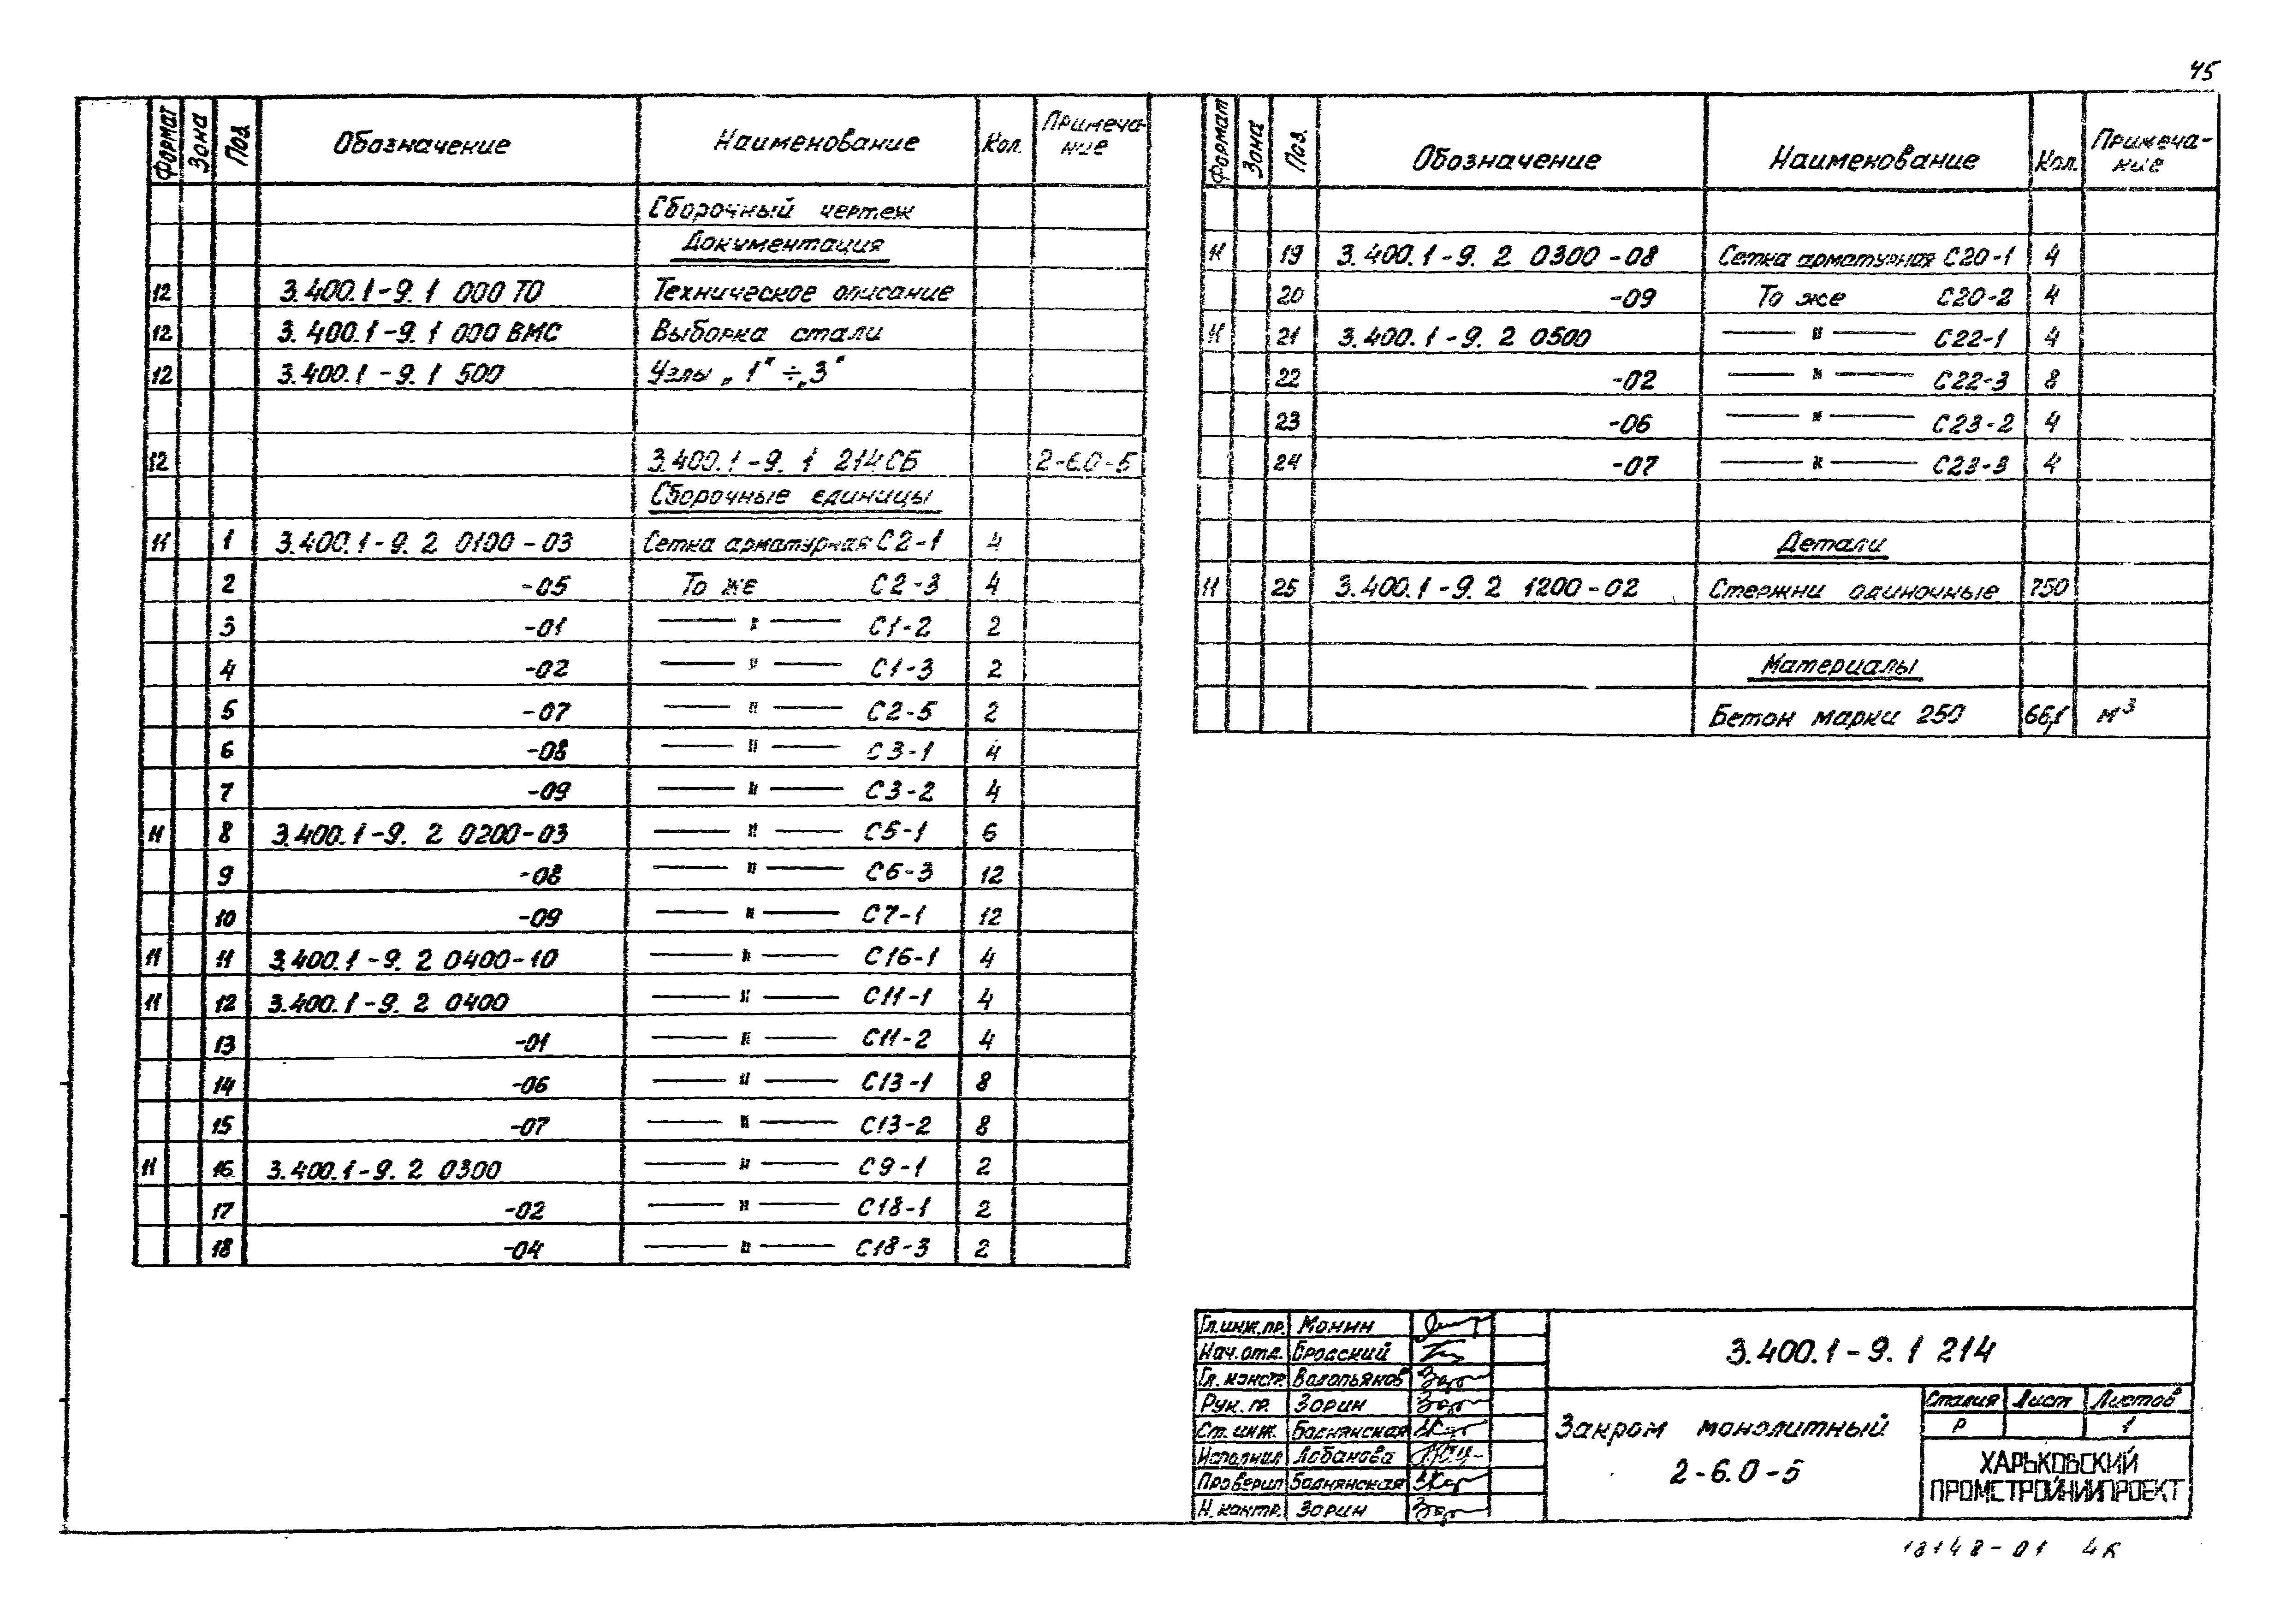 45
Формат Зона Поз. Обозначение Наименование Кол. Примеча-ние
Сборочный чертеж
Документация
12 3.400.1-9.1 000 ТО Техническое описание
12 3.400.1-9.1 000 ВМС Выборка стали
12 3.400.1-9.1 500 Узлы „1"÷„3"
12 3.400.1-9.1 214СБ 2-6.0-5
Сборочные единицы
11 1 3.400.1-9.2 0100-03 Сетка арматурная С2-1 4
2 -05 То же С2-3 4
3 -01 —〃— С1-2 2
4 -02 —〃— С1-3 2
5 -07 —〃— С2-5 2
6 -08 —〃— С3-1 4
7 -09 —〃— С3-2 4
11 8 3.400.1-9.2 0200-03 —〃— С5-1 6
9 -08 —〃— С6-3 12
10 -09 —〃— С7-1 12
11 11 3.400.1-9.2 0400-10 —〃— С16-1 4
11 12 3.400.1-9.2 0400 —〃— С11-1 4
13 -01 —〃— С11-2 4
14 -06 —〃— С13-1 8
15 -07 —〃— С13-2 8
11 16 3.400.1-9.2 0300 —〃— С9-1 2
17 -02 —〃— С18-1 2
18 -04 —〃— С18-3 2
Формат Зона Поз. Обозначение Наименование Кол. Примеча-ние
11 19 3.400.1-9.2 0300-08 Сетка арматурная С20-1 4
20 -09 То же С20-2 4
11 21 3.400.1-9.2 0500 —〃— С22-1 4
22 -02 —〃— С22-3 8
23 -06 —〃— С23-2 4
24 -07 —〃— С23-3 4
Детали
11 25 3.400.1-9.2 1200-02 Стержни одиночные 750
Материалы
Бетон марки 250 66,1 м³
Гл.инж.пр. Монин
Нач.отд. Бродский
Гл.констр. Волопьянов
Рук.гр. Зорин
Ст.инж. Боднянская
Исполнил Лобанова
Проверил Боднянская
Н.контр. Зорин
3.400.1-9.1 214
Закром монолитный
2-6.0-5
Стадия Лист Листов
Р 1
ХАРЬКОВСКИЙ
ПРОМСТРОЙНИИПРОЕКТ
18148-01